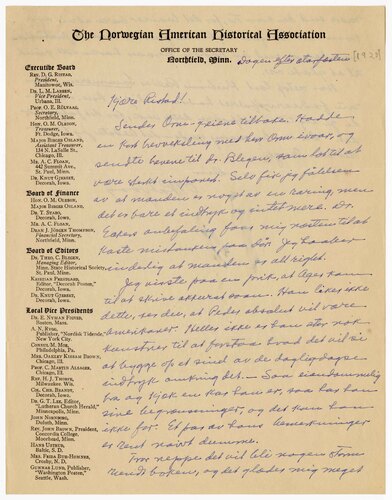 The Norwegian American Historical Association
OFFICE OF THE SECRETARY
Northfield, Minn.
Dagen efter storfesten
[1928]
Executive Board
REV. D. G. RISTAD,
President,
Manitowoc, Wis.
DR. L. M. LARSEN,
Vice President,
Urbana, Ill.
PROF. O. E. RÖLVAAG,
Secretary,
Northfield, Minn.
HON. O. M. OLESON,
Treasurer,
Ft. Dodge, Iowa.
MAJOR BIRGER OSLAND,
Assistant Treasurer,
134 N. LaSalle St.,
Chicago, Ill.
MR. A. C. FLOAN,
442 Summit Ave.,
St. Paul, Minn.
DR. KNUT GJERSET,
Decorah, Iowa.
Board of Finance
HON. O. M. OLESON,
MAJOR BIRGER OSLAND,
DR. T. STABO,
Decorah, Iowa.
MR. A. C. FLOAN,
DEAN J. JÖRGEN THOMPSON,
Financial Secretary,
Northfield, Minn.
Board of Editors
DR. THEO. C. BLEGEN,
Managing Editor,
Minn. State Historical Society,
St. Paul, Minn.
KRISTIAN PRESTGARD,
Editor, "Decorah Posten",
Decorah, Iowa.
DR. KNUT GJERSET,
Decorah, Iowa.
Local Vice Presidents
DR. E. NYMAN FIGVED,
Boston, Mass.
A. N. RYGG,
Publisher, "Nordisk Tidende"
New York City.
CONSUL M. MOE,
Philadelphia, Pa.
MRS. OAKLEY MORGAN BROWN,
Chicago, Ill.
PROF. C. MARTIN ALSAGER,
Chicago, Ill.
REV. H. J. THORPE,
Milwaukee, Wis.
CH. CHR. BRANDT,
Decorah, Iowa.
DR. G. T. LEE, Editor,
"Lutheran Church Herald",
Minneapolis, Minn.
JOHN NORNBORG,
Duluth, Minn.
REV. JOHN BROWN, President,
Concordia College,
Moorhead, Minn.
HANS USTRUD,
Sioux Falls, S. D.
MRS. FRIDA BUE-HOMNES,
Crosby, N. D.
GUNNAR LUND, Publisher,
"Washington Posten",
Seattle, Wash.
Kjære Ristad!
Sender Orm-greiene tilbake. Hadde
en kort brevveksling med herr Orm ivaar, og
sendte brevene til Dr. Blegen, som lot til at
være sterkt imponert. Selv fik jeg følelsen
av at manden er noget av en raring, men
det er bare et indtryk og intet mere. Dr.
Eakers anbefaling faar mig næsten til at
kaste mistanken paa dør. Jeg haaber
inderlig at manden er all right.
Jeg visste paa en prik, at Ager kom
til at skrive akkurat saan. Han liker ikke
dette, ser du, at Peder absolut vil være
amerikaner. Heller ikke er han stor nok
kunstner til at forstaa hvad det vil si
at bygge op et sind av de daglegdagse
indtryk omkring det. — Som eiendommelig
bra og kjæk en kar han er, saa har han
sine begrænsninger, og det kan han
ikke for. Et par av hans bemerkninger
er rent naivt dumme.
For neppe det vil bli nogen storm
rundt boken, og det glæder mig meget